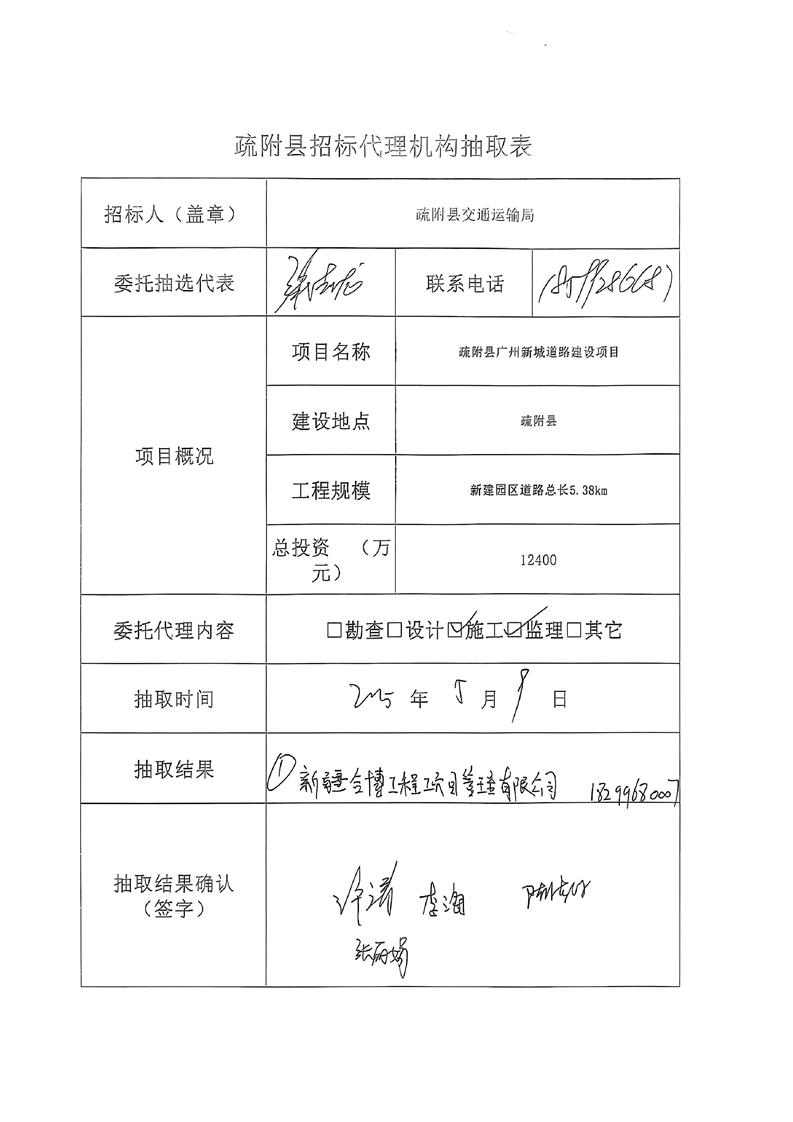 疏附县招标代理机构抽取表
招标人（盖章） 疏附县交通运输局
委托抽选代表 联系电话
项目概况
项目名称 疏附县广州新城道路建设项目
建设地点 疏附县
工程规模 新建园区道路总长5.38km
总投资 （万
元） 12400
委托代理内容 □勘查□设计☑施工☑监理□其它
抽取时间 2025 年 5 月 9 日
抽取结果 ①新疆合博工程项目管理有限公司 18299680007
抽取结果确认
（签字）
李海
张丽娟